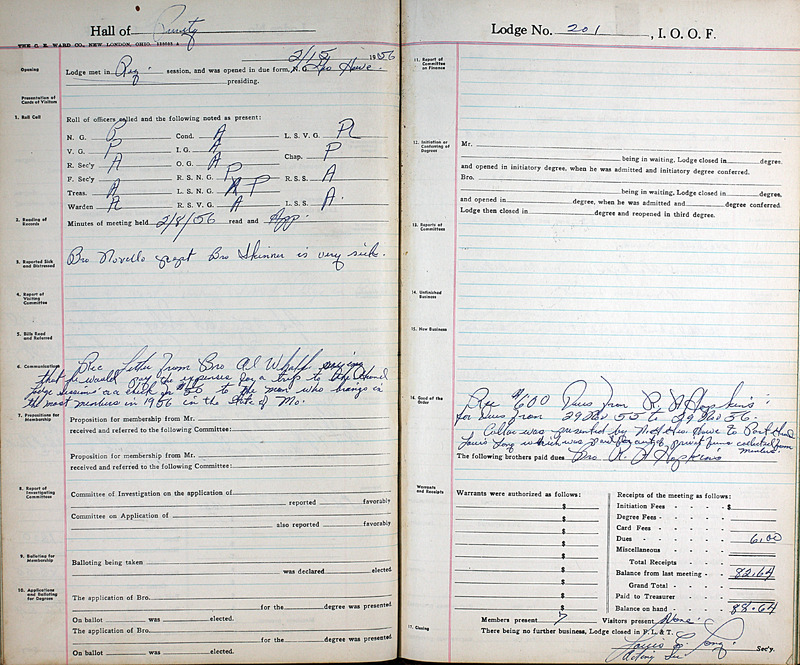 Hall of Purity
THE C. E. WARD CO., NEW LONDON, OHIO.
2/15 1956
Opening
Lodge met in Reg session, and was opened in due form, N.G. Geo Howe
presiding.
Presentation of Cards of Visitors
1. Roll Call
Roll of officers called and the following noted as present:
N. G. P Cond. A L. S. V. G.
V. G. P I. G. A Chap. P
R. Sec'y A O. G. A
F. Sec'y P R. S. N. G. P R. S. S. A
Treas. A L. S. N. G. P L. S. S. A
Warden R. S. V. G. A
2. Reading of Records
Minutes of meeting held 2/8/56 read and App.
3. Reported Sick and Distressed
Bro Novello Bro Skinner is very sick.
4. Report of Visiting Committee
5. Bills Read and Referred
6. Communications
Rec Letter From Bro Al saying
that he would pay the expenses for a trip to the Grand
Lodge Session or a check for $50 to the man who brings in
the most members in 1956 in the State of Mo.
7. Propositions for Membership
Proposition for membership from Mr.
received and referred to the following Committee:
Proposition for membership from Mr.
received and referred to the following Committee:
8. Report of Investigating Committees
Committee of Investigation on the application of
reported favorably
Committee on Application of
also reported favorably
9. Balloting for Membership
Balloting being taken
was declared elected
10. Applications and Balloting for Degrees
The application of Bro.
for the degree was presented.
On ballot was elected.
The application of Bro.
for the degree was presented
On ballot was elected.
Lodge No. 201, I. O. O. F.
11. Report of Committee on Finance
12. Initiation or Conferring of Degrees
Mr.
being in waiting, Lodge closed in degree.
and opened in initiatory degree, when he was admitted and initiatory degree conferred.
Bro.
being in waiting, Lodge closed in degree.
and opened in degree, when he was admitted and degree conferred.
Lodge then closed in degree and reopened in third degree.
13. Reports of Committees
14. Unfinished Business
15. New Business
16. Good of the Order
Rec $6.00 Dues From R. A. Hopkins
for Dues From 29 55 to 29 56.
Collar was presented by N.G. Geo. Howe to Past Grand
Louis Long which was paid for out of private funds collected from
members.
The following brothers paid dues Bro R. A. Hopkins
Warrants and Receipts
Warrants were authorized as follows:
$
$
$
$
$
$
$
$
$
Receipts of the meeting as follows:
Initiation Fees $
Degree Fees
Card Fees
Dues 6.00
Miscellaneous
Total Receipts
Balance from last meeting 82.64
Grand Total
Paid to Treasurer
Balance on hand 88.64
Members present 7 Visitors present None
17. Closing
There being no further business, Lodge closed in F., L. & T.
Louis E. Long
Acting Sec Sec'y.